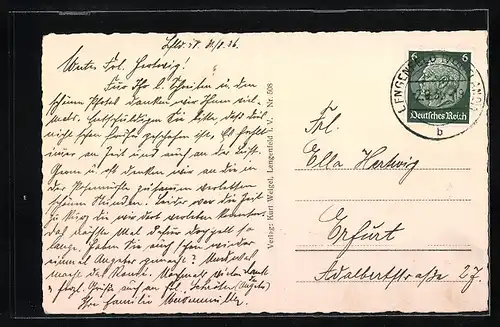 Wertes Frl. Hertwig!
Für Ihr l. Schreiben u. den
schönen Photos danken wir Ihnen viel-
mals. Entschuldigen Sie bitte, daß dies
nicht schon früher geschehen ist. Es fehlt
immer an Zeit und auch an der Lust.
Gern u. oft denken wir an die in
der zusammen verlebten
schönen Stunden. Leider war die Zeit
zu kurz die wir dort verleben konnten.
das nächste Mal dafür doppelt so
lange. Haben Sie auch schon wieder
einmal gemacht? Und was
macht das Nochmals vielen Dank
u. herzl. Grüße auch an Frl.
Ihre Familie
Verlag: Kurt Weigel, Lengenfeld i. V. Nr. 508
6 6
Deutsches Reich
LENGENFELD (VOGTLAND)
b
Frl.
Ella Hertwig
Erfurt
Adalbertstraße 27.